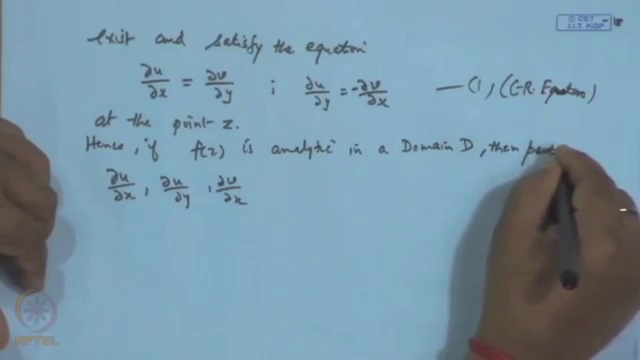 © CET
I.I.T. KGP
exist and satisfy the equation
∂u/∂x = ∂v/∂y ; ∂u/∂y = -∂v/∂x — (1) (C-R. Equation)
at the point z.
Hence, if f(z) is analytic in a Domain D, then
∂u/∂x, ∂u/∂y, ∂v/∂x
NPTEL